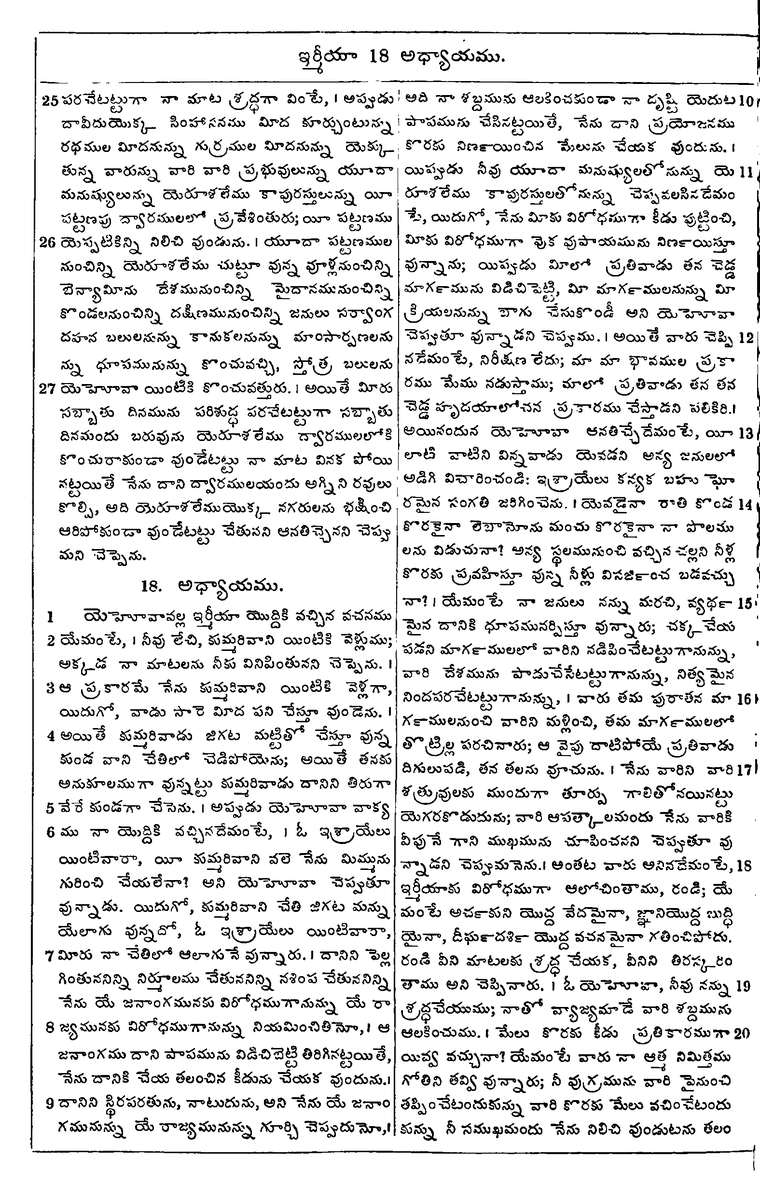 ఇర్మీయా 18 అధ్యాయము.
25 పరచేటట్టుగా నా మాట శ్రద్ధగా వింటే, । అప్పుడు
దావీదుయొక్క సింహాసనము మీద కూర్చుంటున్న
రథముల మీదనున్ను గుర్రముల మీదనున్ను యెక్కు
తున్న వారున్ను వారి వారి ప్రభువులున్ను యూదా
మనుష్యులున్ను యెరూశలేము కాపురస్తులున్ను యీ
పట్టణపు ద్వారములలో ప్రవేశింతురు; యీ పట్టణము
26 యెప్పటికిన్ని నిలిచి వుండును. । యూదా పట్టణముల
నుంచిన్ని యెరూశలేము చుట్టూ వున్న వూళ్లనుంచిన్ని
బెన్యామీను దేశమునుంచిన్ని మైదానమునుంచిన్ని
కొండలనుంచిన్ని దక్షిణమునుంచిన్ని జనులు సర్వాంగ
దహన బలులనున్ను కానుకలనున్ను మాంసార్పణలను
న్ను ధూపమునున్ను కొంచువచ్చి, స్తోత్ర బలులను
27 యెహోవా యింటికి కొంచువత్తురు. । అయితే మీరు
సబ్బాతు దినమును పరిశుద్ధ పరచేటట్టుగా సబ్బాతు
దినమందు బరువును యెరూశలేము ద్వారములలోకి
కొంచురాకుండా వుండేటట్టు నా మాట వినక పోయి
నట్టయితే నేను దాని ద్వారములయందు అగ్ని ని రవులు
కొల్పి, అది యెరూశలేముయొక్క నగరులను భక్షించి
ఆరిపోకుండా వుండేటట్టు చేతునని ఆనతిచ్చెనని చెప్పు
మని చెప్పెను.
18. అధ్యాయము.
1 యెహోవావల్ల ఇర్మీయా యొద్దికి వచ్చిన వచనము
2 యేమంటే, । నీవు లేచి, కుమ్మరివాని యింటికి వెళ్లుము;
అక్కడ నా మాటలను నీకు వినిపింతునని చెప్పెను. ।
3 ఆ ప్రకారమే నేను కుమ్మరివాని యింటికి వెళ్లగా,
యిదుగో, వాడు సారె మీద పని చేస్తూ వుండెను. ।
4 అయితే కుమ్మరివాడు జిగట మట్టితో చేస్తూ వున్న
కుండ వాని చేతిలో చెడిపోయెను; అయితే తనకు
అనుకూలముగా వున్నట్టు కుమ్మరివాడు దానిని తిరుగా
5 వేరే కుండగా చేసెను. । అప్పుడు యెహోవా వాక్య
6 ము నా యొద్దికి వచ్చినదేమంటే, । ఓ ఇశ్రాయేలు
యింటివారా, యీ కుమ్మరివాని వలె నేను మిమ్మును
గురించి చేయలేనా? అని యెహోవా చెప్పుతూ
వున్నాడు. యిదుగో, కుమ్మరివాని చేతి జిగట మన్ను
యేలాగు వున్నదో, ఓ ఇశ్రాయేలు యింటివారా,
7 మీరు నా చేతిలో ఆలాగునే వున్నారు. । దానిని పెల్ల
గింతుననిన్ని నిర్మూలము చేతుననిన్ని నశింప చేతుననిన్ని
నేను యే జనాంగమునకు విరోధముగానున్ను యే రా
8 జ్యమునకు విరోధముగానున్ను నియమించితినో, । ఆ
జనాంగము దాని పాపమును విడిచిబెట్టి తిరిగినట్టయితే,
నేను దానికి చేయ తలంచిన కీడును చేయక వుందును.।
9 దానిని స్థిరపరతును, నాటుదును, అని నేను యే జనాం
గమునున్ను యే రాజ్యమునున్ను గూర్చి చెప్పుదునో,।
అది నా శబ్దమును ఆలకించకుండా నా దృష్టి యెదుట 10
పాపమును చేసినట్టయితే, నేను దాని ప్రయోజనము
కొరకు నిర్ణయించిన మేలును చేయక వుందును. ।
యిప్పుడు నీవు యూదా మనుష్యులతోనున్ను యె 11
రూశలేము కాపురస్తులతోనున్ను చెప్పవలసినదేమం
టే, యిదుగో, నేను మీకు విరోధముగా కీడు పుట్టించి,
మీకు విరోధముగా వొక వుపాయమును నిర్ణయిస్తూ
వున్నాను; యిప్పుడు మీలో ప్రతివాడు తన చెడ్డ
మార్గమును విడిచిపెట్టి, మీ మార్గములనున్ను మీ
క్రియలనున్ను బాగు చేసుకొండీ అని యెహోవా
చెప్పుతూ వున్నాడని చెప్పుము. । అయితే వారు చెప్పి 12
నదేమంటే, నిరీక్షణ లేదు; మా మా భావముల ప్రకా
రము మేము నడుస్తాము; మాలో ప్రతివాడు తన తన
చెడ్డ హృదయాలోచన ప్రకారము చేస్తాడని పలికిరి.।
అయినందున యెహోవా ఆనతిచ్చేదేమంటే, యీ 13
లాటి వాటిని విన్నవాడు యెవడని అన్య జనులలో
అడిగి విచారించండి: ఇశ్రాయేలు కన్యక బహు ఘో
రమైన సంగతి జరిగించెను. । యెవడైనా రాతి కొండ 14
కొరకైనా లెబానోను మంచు కొరకైనా నా పొలము
లను విడుచునా? అన్య స్థలమునుంచి వచ్చిన చల్లని నీళ్ల
కొరకు ప్రవహిస్తూ వున్న నీళ్లు విసర్జించ బడవచ్చు
నా? । యేమంటే నా జనులు నన్ను మరచి, వ్యర్థ 15
మైన దానికి ధూపమునర్పిస్తూ వున్నారు; చక్క చేయ
పడని మార్గములలో వారిని నడిపించేటట్టుగానున్ను,
వారి దేశమును పాడుచేసేటట్టుగానున్ను, నిత్యమైన
నిందపరచేటట్టుగానున్ను, । వారు తమ పురాతన మా 16
ర్గములనుంచి వారిని మళ్లించి, తమ మార్గములలో
తొట్రిల్ల పరచినారు; ఆ వైపు దాటిపోయే ప్రతివాడు
దిగులుపడి, తన తలను వూచును. । నేను వారిని వారి 17
శత్రువులకు ముందుగా తూర్పు గాలితోనయినట్టు
యెగరకొడుదును; వారి ఆపత్కాలమందు నేను వారికి
వీపునే గాని ముఖమును చూపించనని చెప్పుతూ వు
న్నాడని చెప్పుమనెను.। అంతట వారు అనినదేమంటే, 18
ఇర్మీయాకు విరోధముగా ఆలోచింతాము, రండి; యే
మంటే అర్చకుని యొద్ద వేదమైనా, జ్ఞానియొద్ద బుద్ధి
యైనా, దీర్ఘదర్శి యొద్ద వచనమైనా గతించిపోదు.
రండి వీని మాటలకు శ్రద్ధ చేయక, వీనిని తిరస్కరిం
తాము అని చెప్పినారు. । ఓ యెహోవా, నీవు నన్ను 19
శ్రద్ధచేయుము; నాతో వ్యాజ్యమాడే వారి శబ్దమును
ఆలకించుము. । మేలు కొరకు కీడు ప్రతికారముగా 20
యివ్వ వచ్చునా? యేమంటే వారు నా ఆత్మ నిమిత్తము
గోతిని తవ్వి వున్నారు; నీ వుగ్రమును వారి పైనుంచి
తప్పించేటందుకున్ను వారి కొరకు మేలు వచించేటందు
కున్ను నీ సముఖమందు నేను నిలిచి వుండుటను తలం